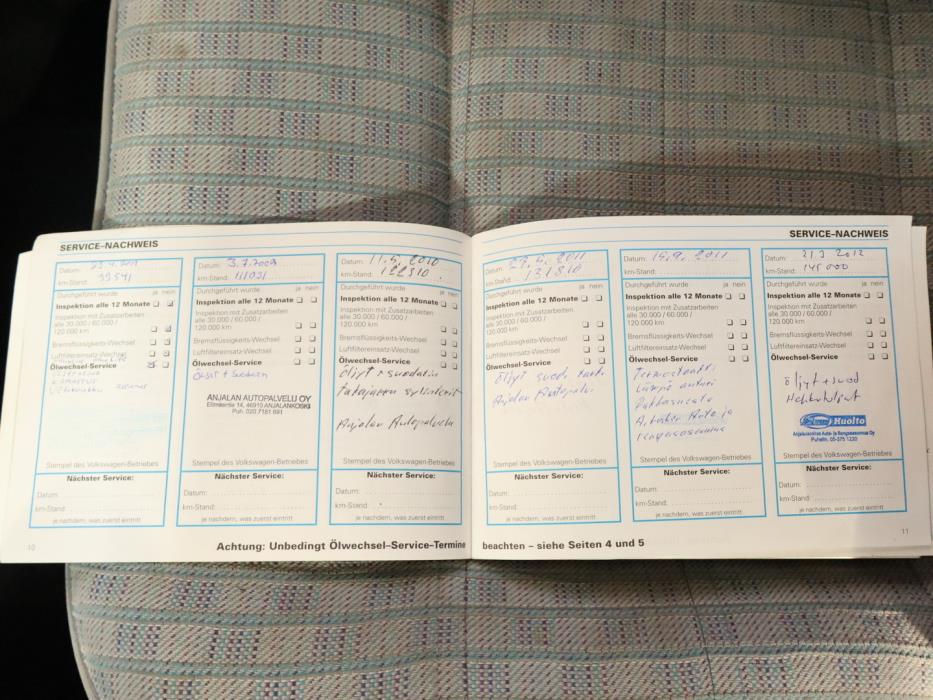 SERVICE–NACHWEIS
Datum:
km-Stand: 99541
Durchgeführt wurde ja nein
Inspektion alle 12 Monate
Inspektion mit Zusatzarbeiten
alle 30.000 / 60.000 /
120.000 km
Bremsflüssigkeits-Wechsel
Luftfiltereinsatz-Wechsel
Ölwechsel-Service
Stempel des Volkswagen-Betriebes
Nächster Service:
Datum:
km-Stand:
je nachdem, was zuerst eintritt
Datum: 3.7.2009
km-Stand: 111031
Durchgeführt wurde ja nein
Inspektion alle 12 Monate
Inspektion mit Zusatzarbeiten
alle 30.000 / 60.000 /
120.000 km
Bremsflüssigkeits-Wechsel
Luftfiltereinsatz-Wechsel
Ölwechsel-Service
ANJALAN AUTOPALVELU OY
Elimäentie 14, 46910 ANJALANKOSKI
Puh. 020 7181 691
Stempel des Volkswagen-Betriebes
Nächster Service:
Datum:
km-Stand:
je nachdem, was zuerst eintritt
Datum: 11.5.2010
km-Stand: 122310
Durchgeführt wurde ja nein
Inspektion alle 12 Monate
Inspektion mit Zusatzarbeiten
alle 30.000 / 60.000 /
120.000 km
Bremsflüssigkeits-Wechsel
Luftfiltereinsatz-Wechsel
Ölwechsel-Service
öljyt + suodatin
Anjalan Autopalvelu
Stempel des Volkswagen-Betriebes
Nächster Service:
Datum:
km-Stand:
je nachdem, was zuerst eintritt
10
Achtung: Unbedingt Ölwechsel–Service–Termine
SERVICE–NACHWEIS
Datum: 2011
km-Stand: 131810
Durchgeführt wurde ja nein
Inspektion alle 12 Monate
Inspektion mit Zusatzarbeiten
alle 30.000 / 60.000 /
120.000 km
Bremsflüssigkeits-Wechsel
Luftfiltereinsatz-Wechsel
Ölwechsel-Service
öljyt suod
Anjalan Autopalv
Stempel des Volkswagen-Betriebes
Nächster Service:
Datum:
km-Stand:
je nachdem, was zuerst eintritt
Datum: 15.9.2011
km-Stand:
Durchgeführt wurde ja nein
Inspektion alle 12 Monate
Inspektion mit Zusatzarbeiten
alle 30.000 / 60.000 /
120.000 km
Bremsflüssigkeits-Wechsel
Luftfiltereinsatz-Wechsel
Ölwechsel-Service
Lämpö anturi
Stempel des Volkswagen-Betriebes
Nächster Service:
Datum:
km-Stand:
je nachdem, was zuerst eintritt
Datum: 21 3 2012
km-Stand: 145 000
Durchgeführt wurde ja nein
Inspektion alle 12 Monate
Inspektion mit Zusatzarbeiten
alle 30.000 / 60.000 /
120.000 km
Bremsflüssigkeits-Wechsel
Luftfiltereinsatz-Wechsel
Ölwechsel-Service
öljyt + suod
Hehkutulpat
Huolto
Anjalankosken Auto- ja Rengasasennus Oy
Puhelin. 05-375 1220
Stempel des Volkswagen-Betriebes
Nächster Service:
Datum:
km-Stand:
je nachdem, was zuerst eintritt
beachten – siehe Seiten 4 und 5
11